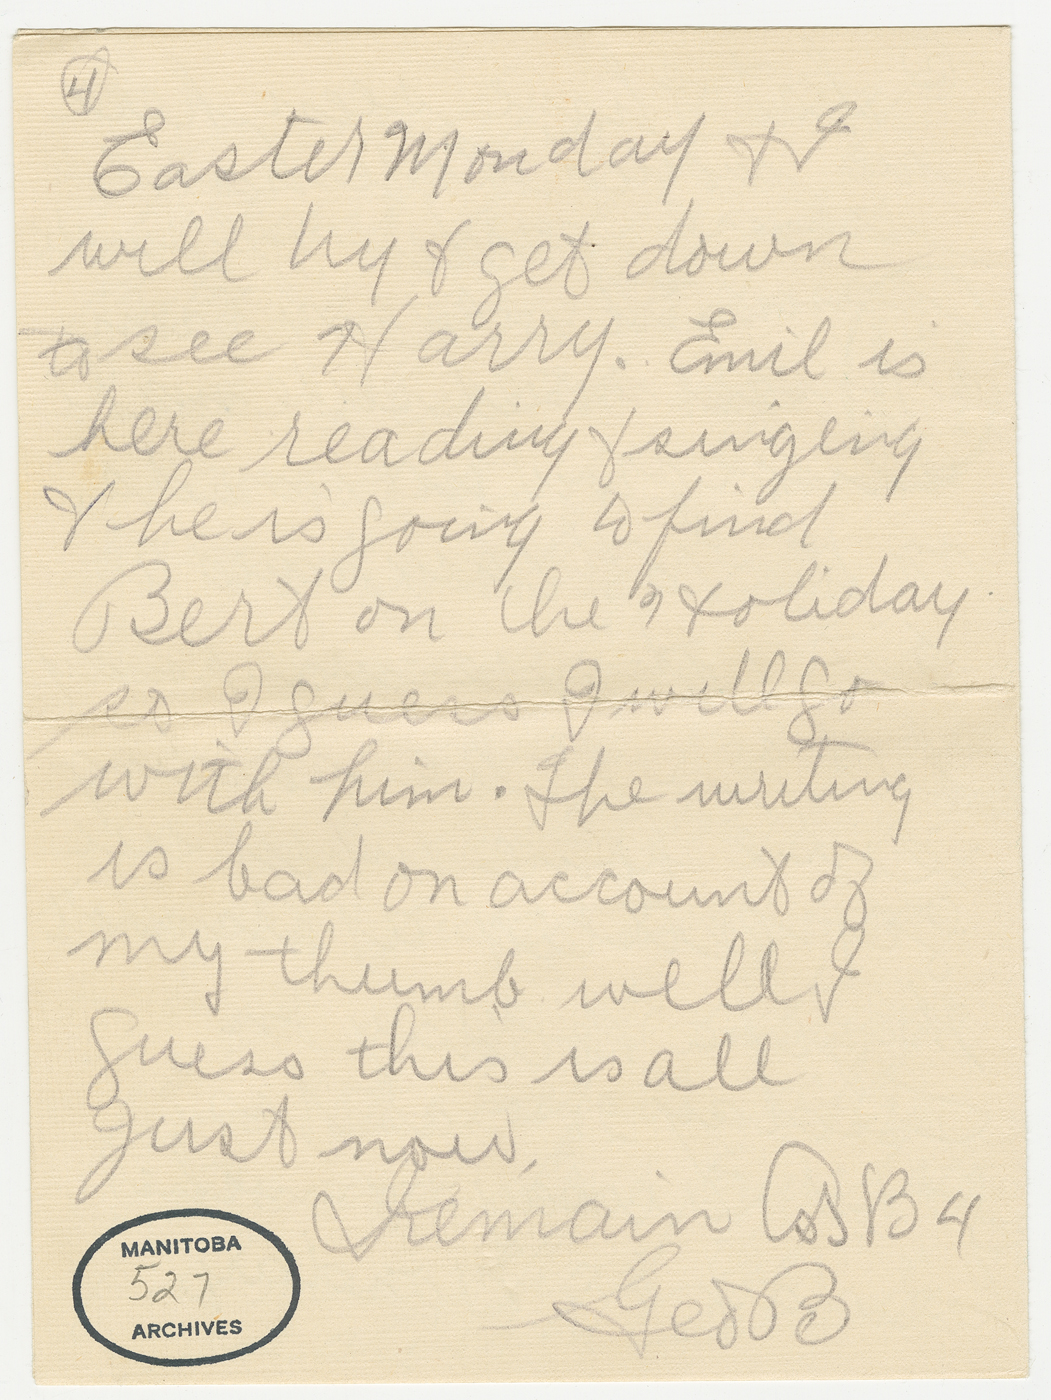 4
Easter Monday & I
will try & get down
to see Harry. Emil is
here reading & singing
& he is going to find
Bert on the Holiday
so I guess I will go
with him. The writing
is bad on account of
my thumb well I
guess this is all
just now,
I remain As B 4
Geo B
MANITOBA
527
ARCHIVES